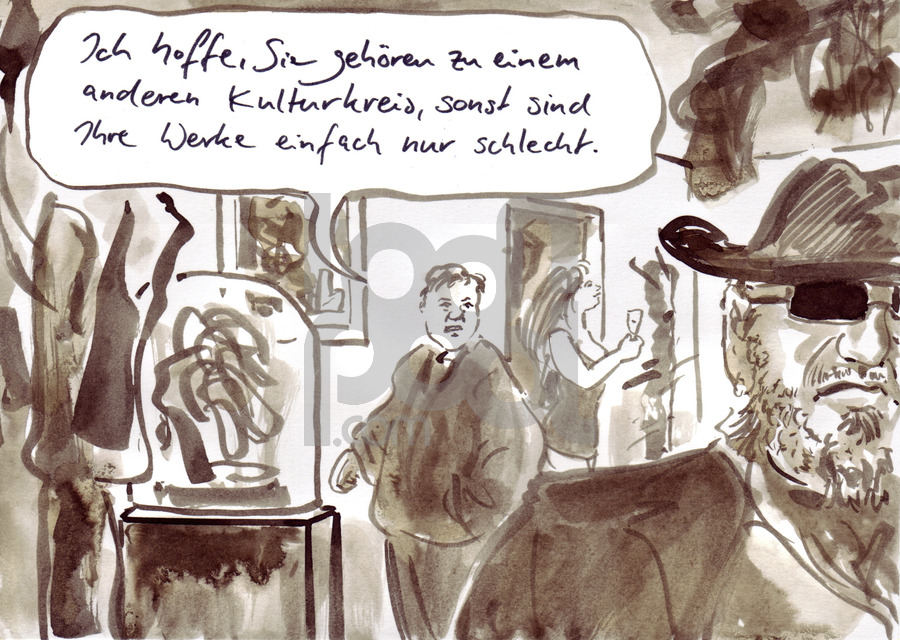 Ich hoffe, Sie gehören zu einem
anderen Kulturkreis, sonst sind
Ihre Werke einfach nur schlecht.